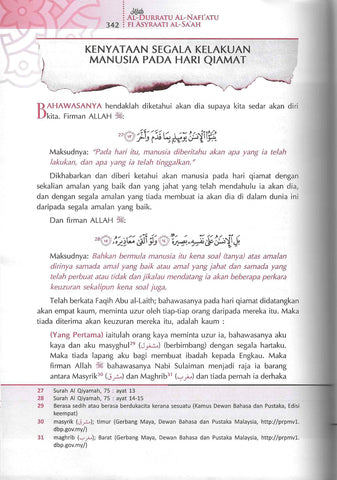 Kitab
AL-DURRATU AL-NAFI'ATU
342 FI ASYRAATI AL-SA'AH
KENYATAAN SEGALA KELAKUAN
MANUSIA PADA HARI QIAMAT
BAHAWASANYA hendaklah diketahui akan dia supaya kita sedar akan diri
kita. Firman ALLAH ﷻ:
يُنَبَّؤُا۟ ٱلْإِنسَٰنُ يَوْمَئِذٍۭ بِمَا قَدَّمَ وَأَخَّرَ ﴿١٣﴾ 27
Maksudnya: "Pada hari itu, manusia diberitahu akan apa yang ia telah
lakukan, dan apa yang ia telah tinggalkan."
Dikhabarkan dan diberi ketahui akan manusia pada hari qiamat dengan
sekalian amalan yang baik dan yang jahat yang telah mendahulu ia akan dia,
dan dengan segala amalan yang tiada membuat ia akan dia di dalam dunia ini
daripada segala amalan yang baik.
Dan firman ALLAH ﷻ:
بَلِ ٱلْإِنسَٰنُ عَلَىٰ نَفْسِهِۦ بَصِيرَةٌ ﴿١٤﴾ وَلَوْ أَلْقَىٰ مَعَاذِيرَهُۥ ﴿١٥﴾ 28
Maksudnya: Bahkan bermula manusia itu kena soal (tanya) atas amalan
dirinya samada amal yang baik atau amal yang jahat dan samada yang
telah perbuat atau tidak dan jikalau mendatang ia akan beberapa perkara
keuzuran sekalipun kena soal juga.
Telah berkata Faqih Abu al-Laith; bahawasanya pada hari qiamat didatangkan
akan empat kaum, meminta uzur oleh tiap-tiap orang daripada mereka itu. Maka
tiada diterima akan keuzuran mereka itu, adalah kaum :
(Yang Pertama) iaitulah orang kaya meminta uzur ia, bahawasanya aku
kaya dan aku masyghul29 (مشغول) (berbimbang) dengan segala hartaku.
Maka tiada lapang aku bagi membuat ibadah kepada Engkau. Maka
firman Allah ﷻ bahawasanya Nabi Sulaiman menjadi raja ia barang
antara Masyrik30 (مشرق) dan Maghrib31 (مغرب) dan tiada pernah ia derhaka
27 Surah Al Qiyamah, 75 : ayat 13
28 Surah Al Qiyamah, 75 : ayat 14-15
29 Berasa sedih atau berasa berdukacita kerana sesuatu (Kamus Dewan Bahasa dan Pustaka, Edisi
keempat)
30 masyrik (مشرق); timur (Gerbang Maya, Dewan Bahasa dan Pustaka Malaysia, http://prpmv1.
dbp.gov.my/)
31 maghrib (مغرب); Barat (Gerbang Maya, Dewan Bahasa dan Pustaka Malaysia, http://prpmv1.
dbp.gov.my/)